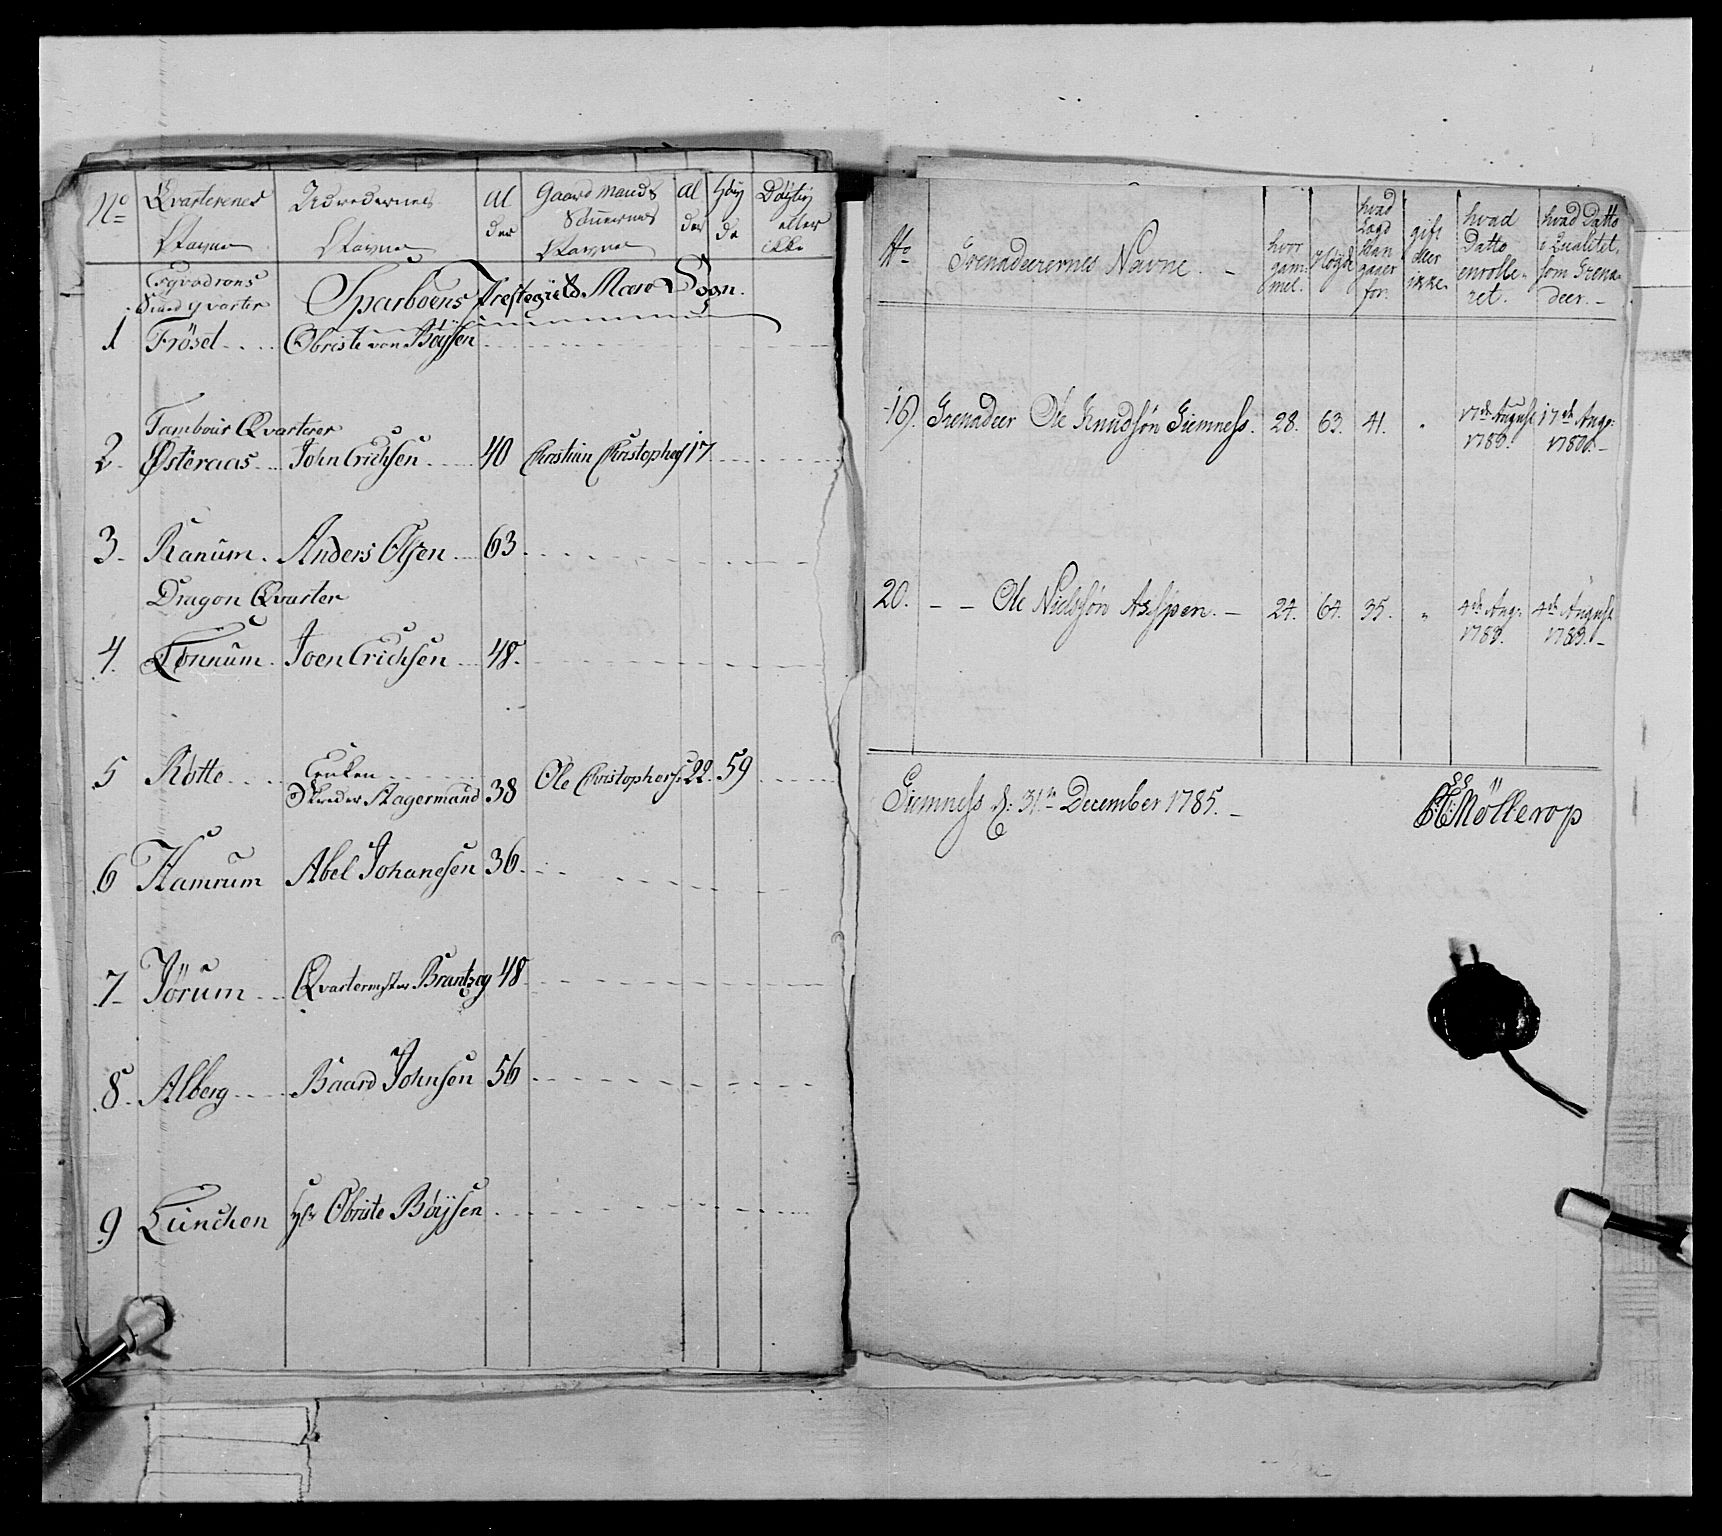 No Qvarterenes Navne Udredernes Navne Al der Gaard Mands Sönnernes Navne Al der Höy de Döygtig eller ikke
Esqvadrons Stand qvarter
Sparboens Præstegield Mære Sogn.
1 Fröset Obriste von Böysen
Tambour Qvarterer
2. Østeraas John Erichsen 40 Christian Christophers 17
3. Ranum Anders Olsen 63
Dragon Qvarter
4. Tonnum Joen Erichsen 48.
5 Rotte Enken
Skreder Hagermand 38 Ole Christophers 22. 59
6 Hamrum Abel Johanesen 36.
7. Jörum Qvartermester Brantzeg 48
8. Alberg Baard Johnsen 56
9 Lünchen Hr Obriste Böysen
No Grenadeerernes Navne. hvor gam mel. Høyde hvad Lægd Han gaaer for. gift eller ikke. hvad Datto enrolle- ret. hvad Datto i Qualitet. som Grena- deer.
19. Grenadeer Ole Knudsøn Giemness. 28. 63. 41. " 17de August 1780. 17de Aug: 1780.
20. Ole Nielsøn Aspen. 24. 64. 35. " 4de Aug: 1783. 4de August 1783.
Giemness d: 31te December 1785.
Möllerop